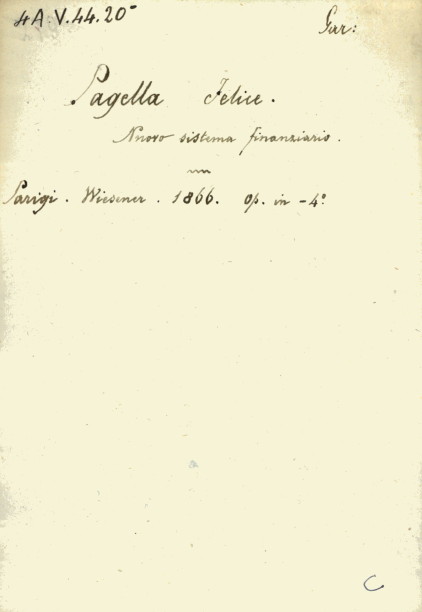 4A V.44.20
Gar:
Pagella Felice.
Nuovo sistema finanziario.
Parigi. Wiesener. 1866. op. in-4°
C